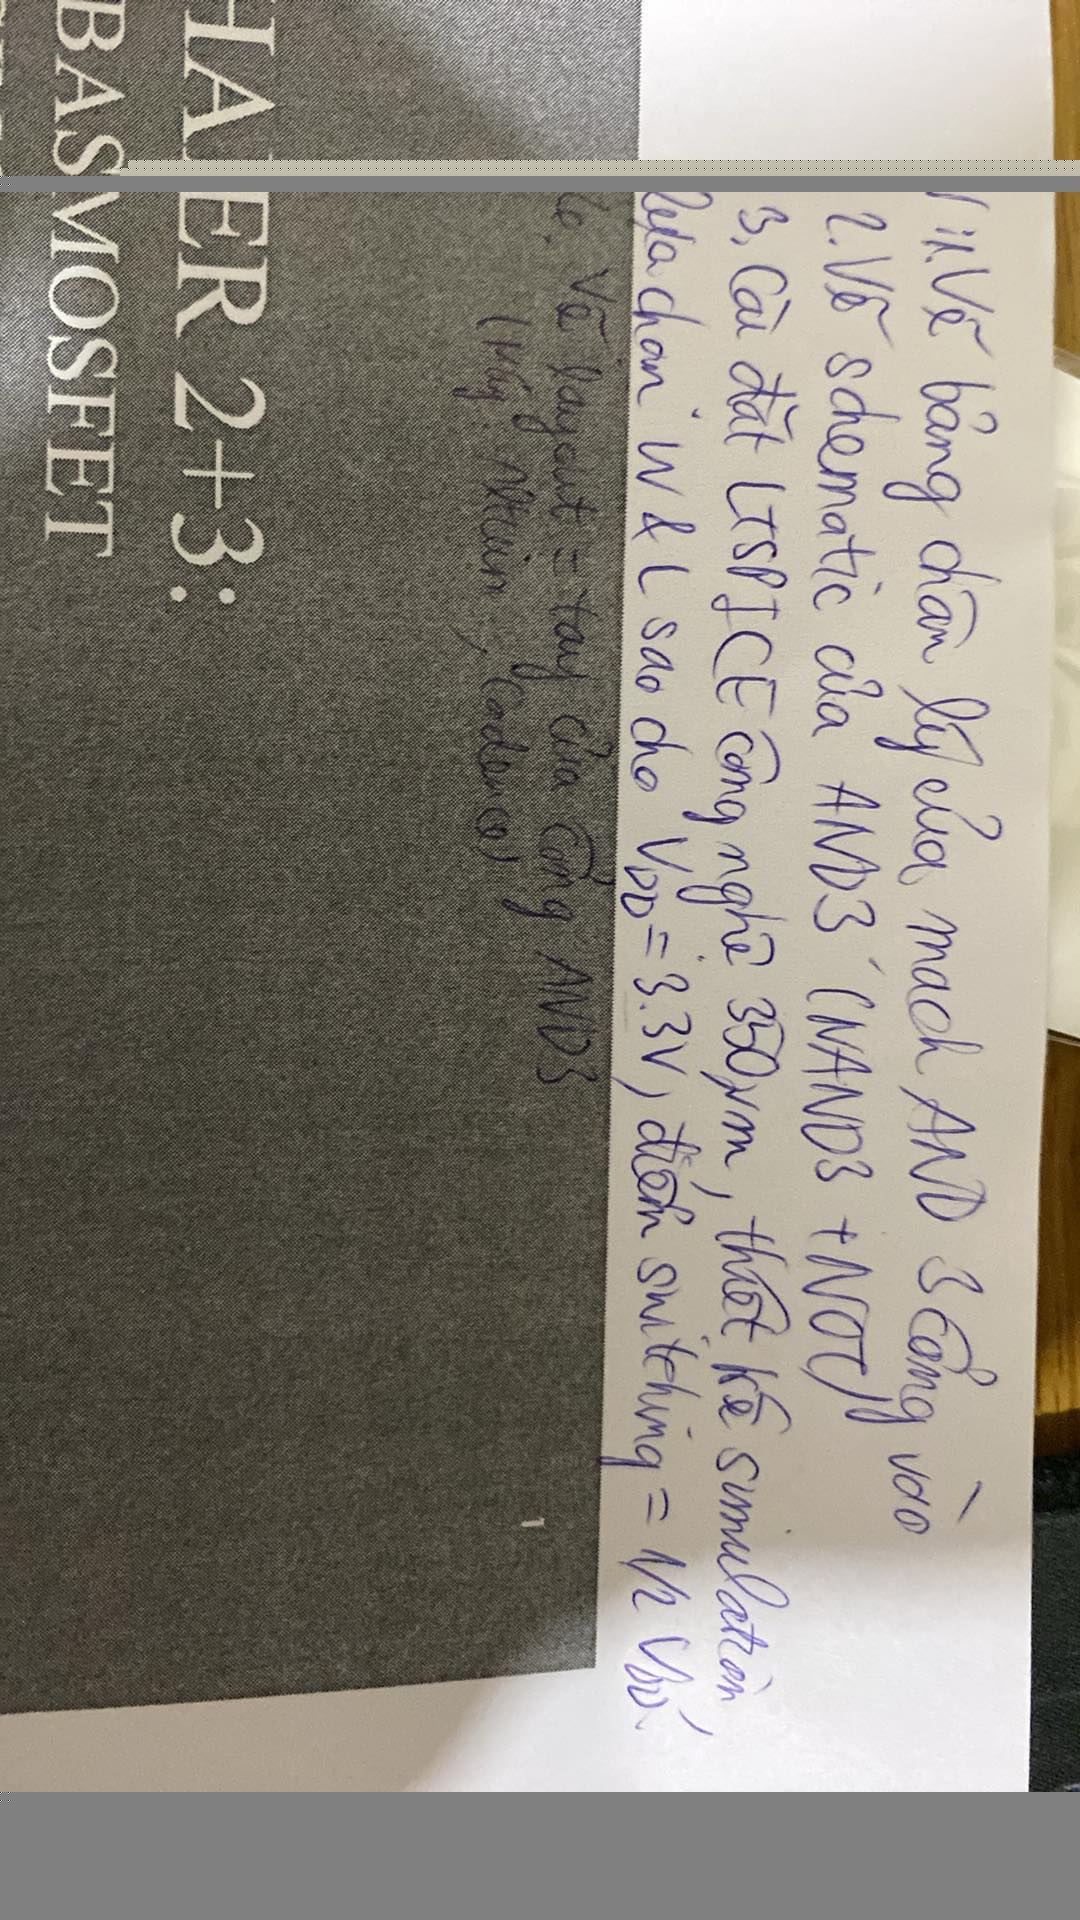 1. Vẽ bảng chân lý của mạch AND 3 cổng vào
2. Vẽ schematic của AND3 (NAND3 + NOT)
3. Cài đặt LTSPICE công nghệ 350µm, thiết kế simulation
Lựa chọn W & L sao cho VDD = 3.3V, điểm switching = 1/2 VDD.
Vẽ layout = tay của cổng AND3
HAPER 2+3:
BASMOSFET